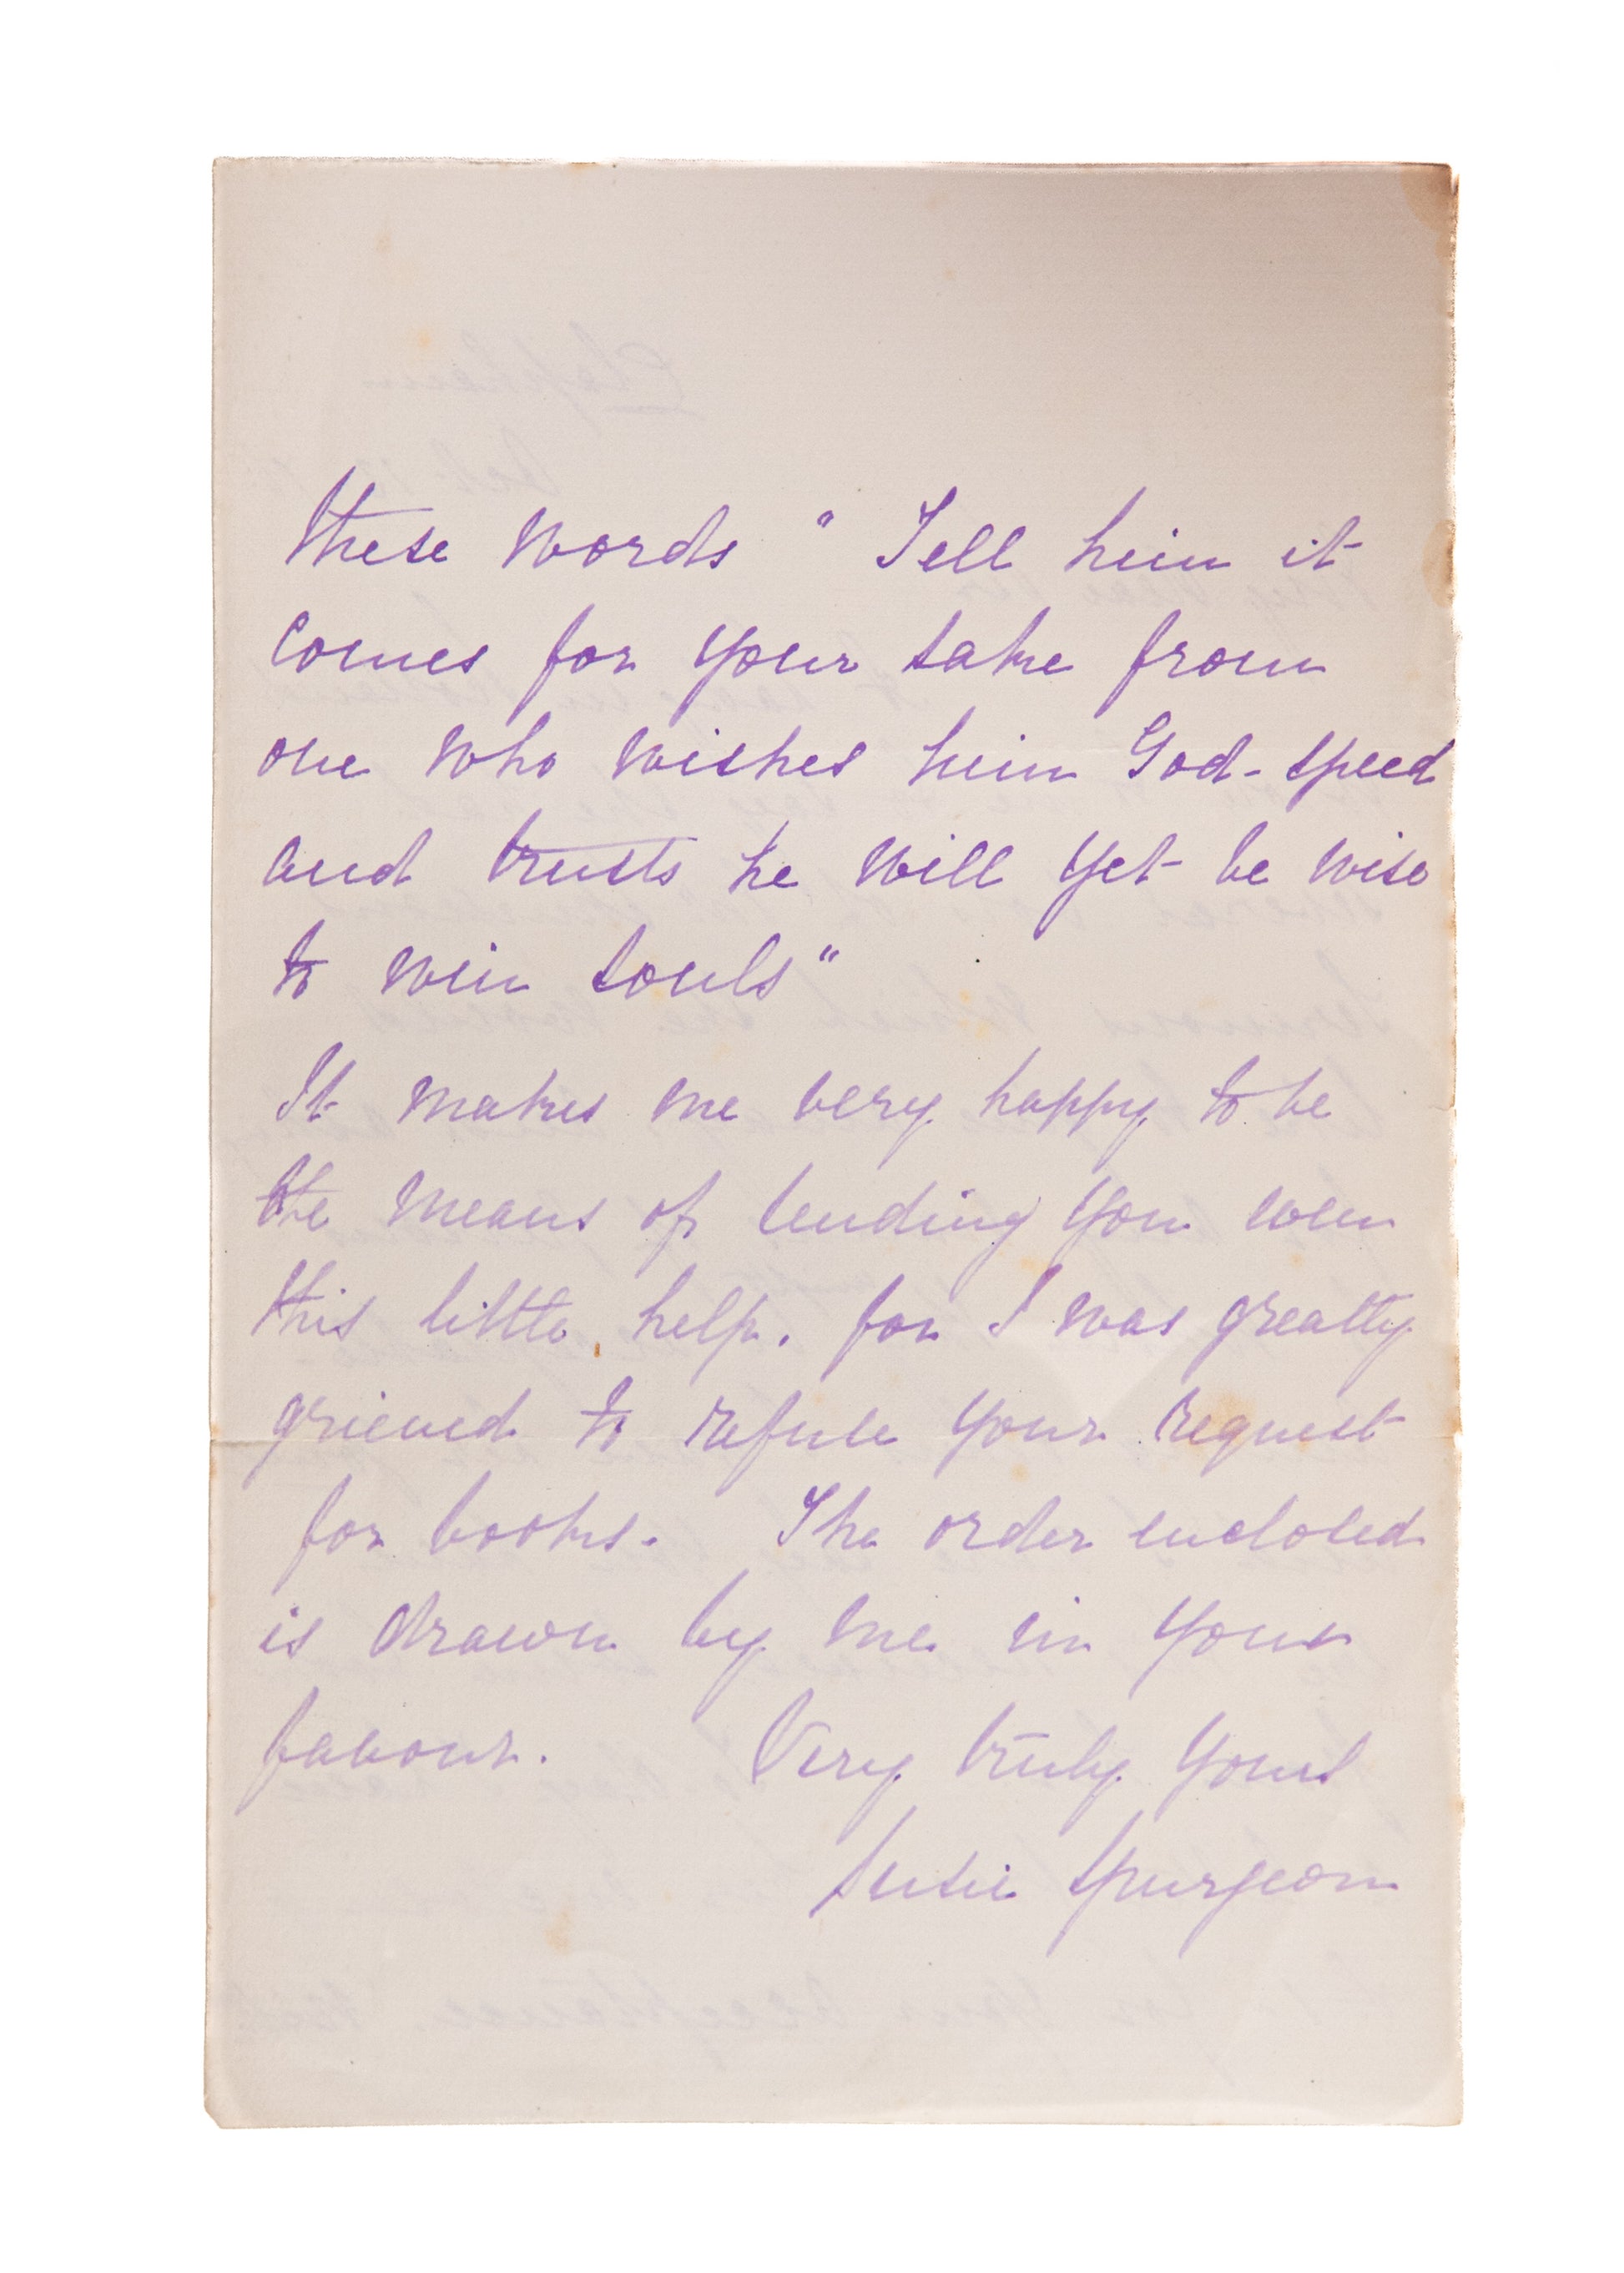 these words " Tell him it
comes for your sake from
one who wishes him God-speed
and trusts he will yet be wise
to win souls"
It makes me very happy to be
the means of lending you even
this little help. for I was greatly
grieved to refuse your request
for books. The order enclosed
is drawn by me in your
favour. Very truly yours
Susie Spurgeon